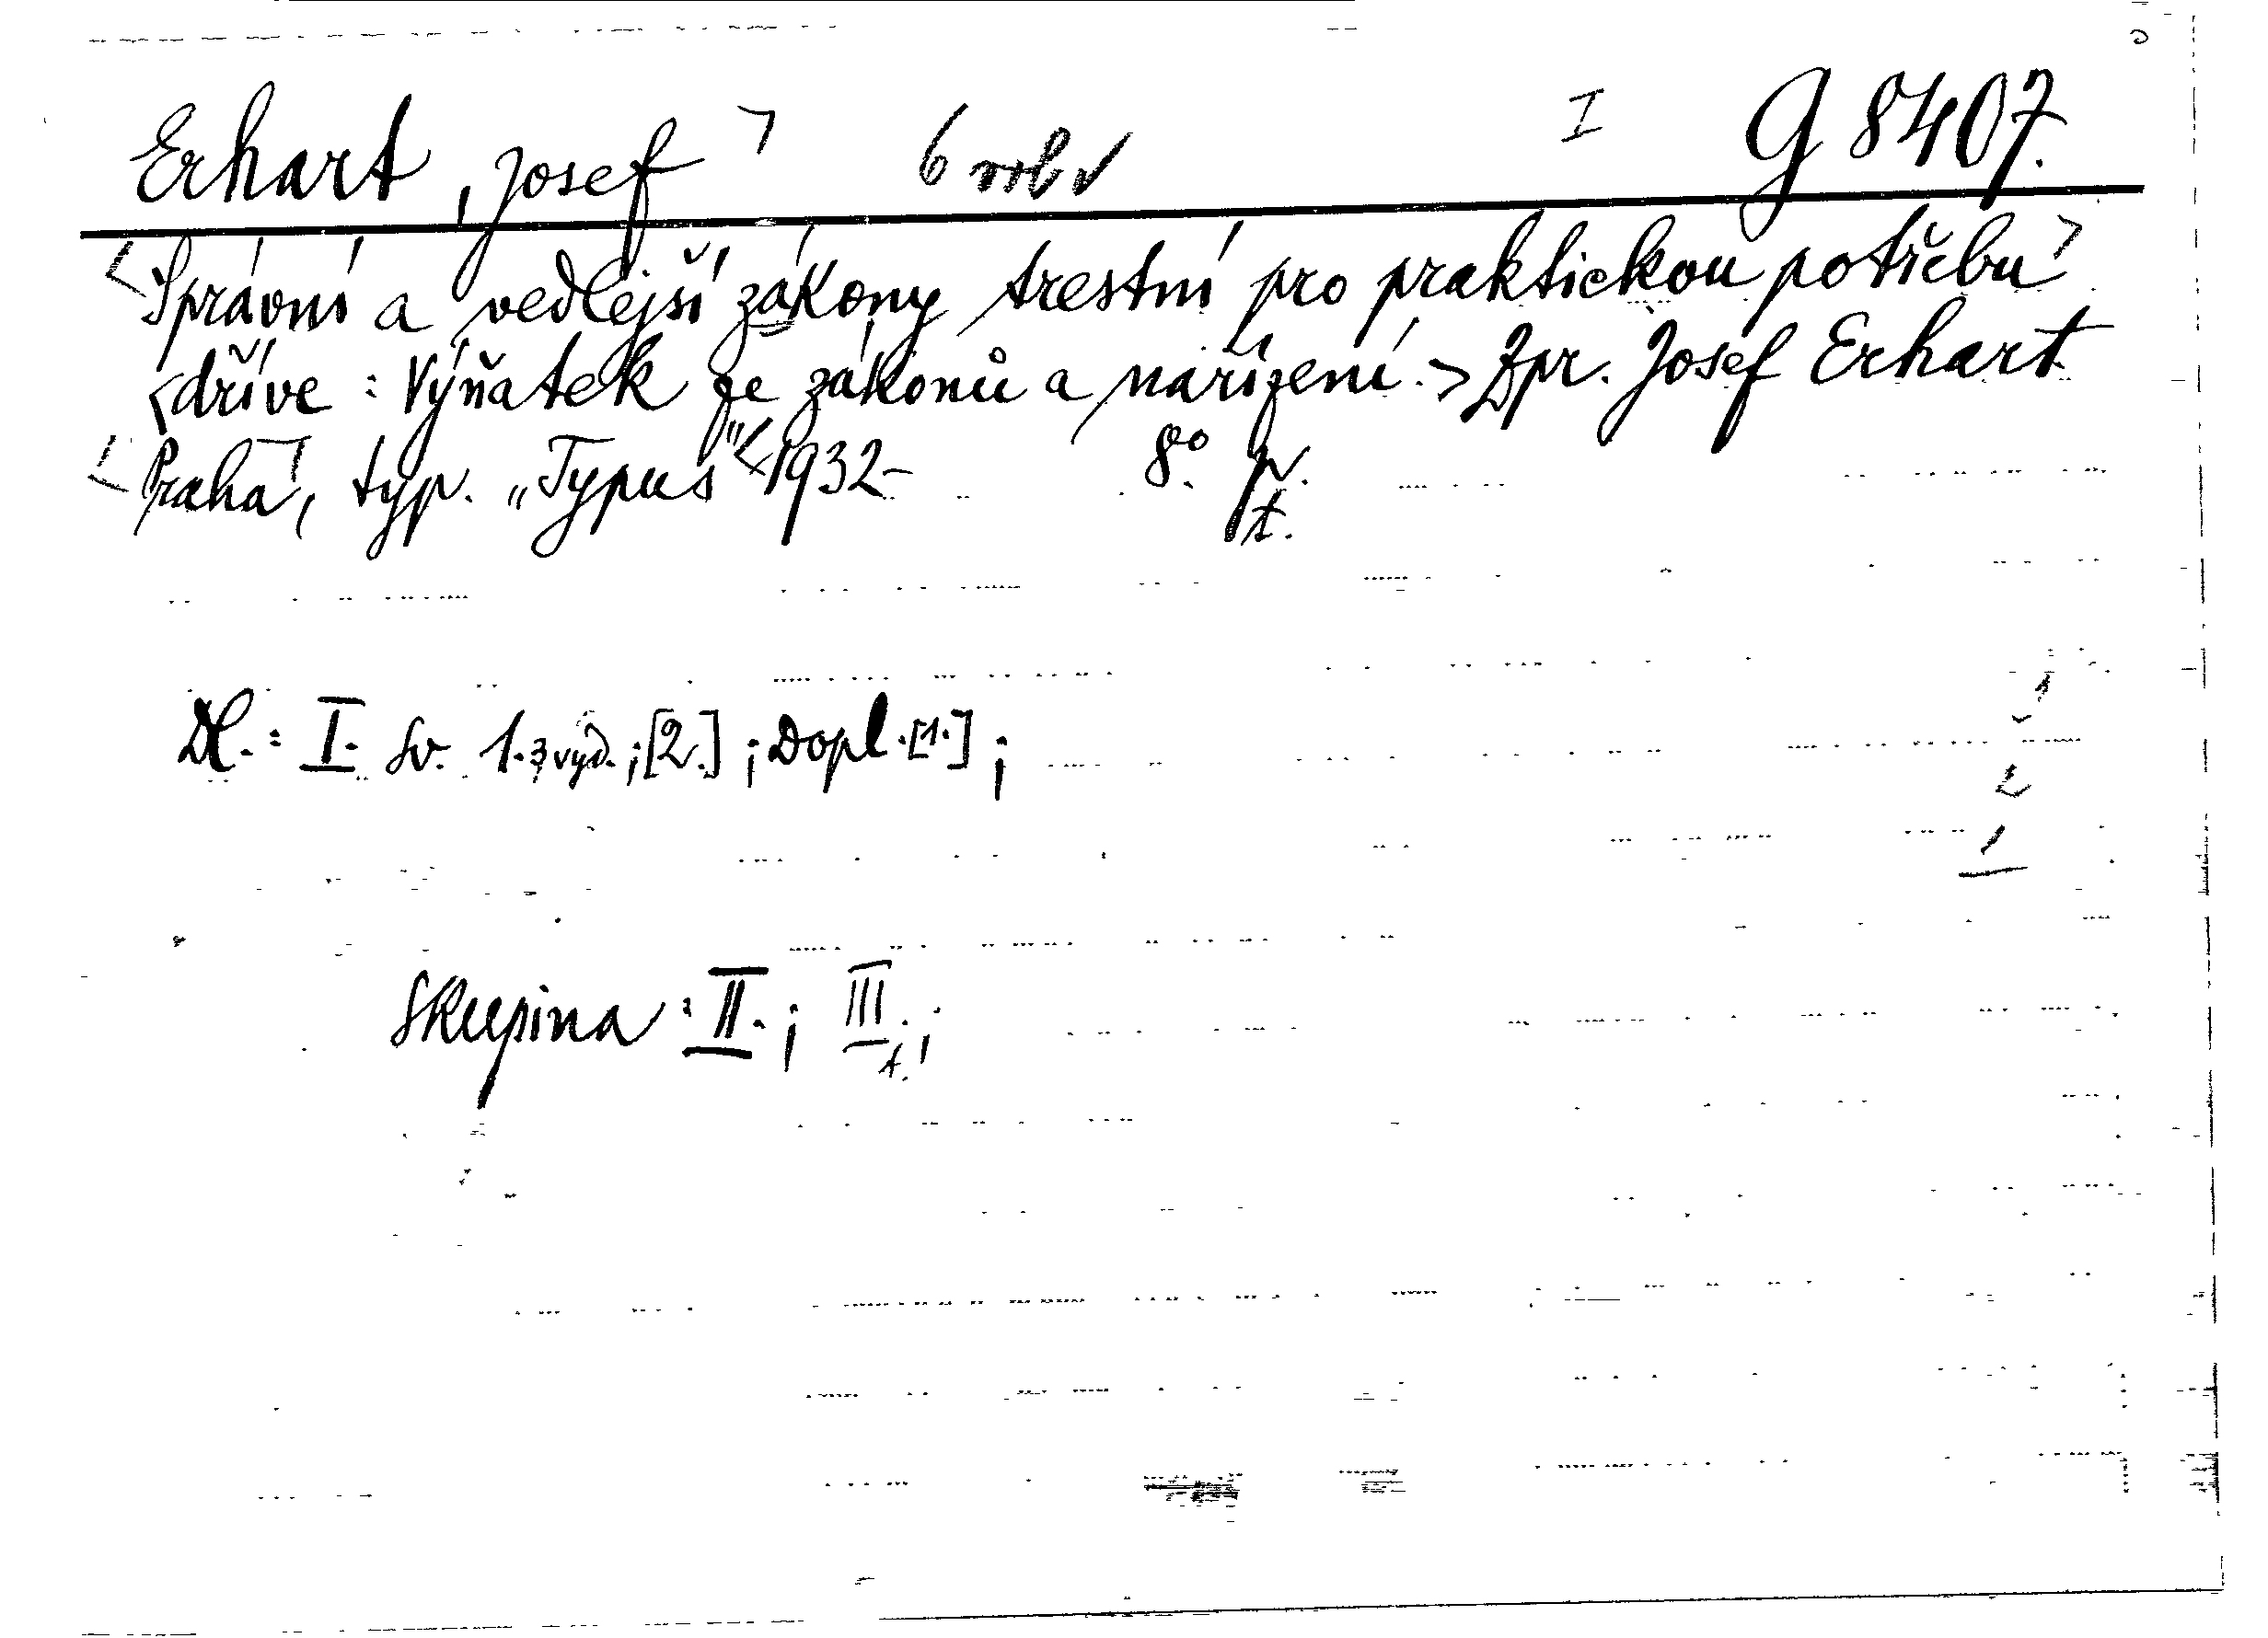 Erhart, Josef 6 I G 8407.
Správní a vedlejší zákony trestní pro praktickou potřebu
<dříve: Výňatek ze zákonů a nařízení.> Zpr. Josef Erhart
Praha, typ. „Typus" 1932- 8°. p.
t.
Dl.: I. sv. 1. 3 vyd.; [2.]; Dopl. [1.];
1
2
1
Skupina: II.; III.;
t.